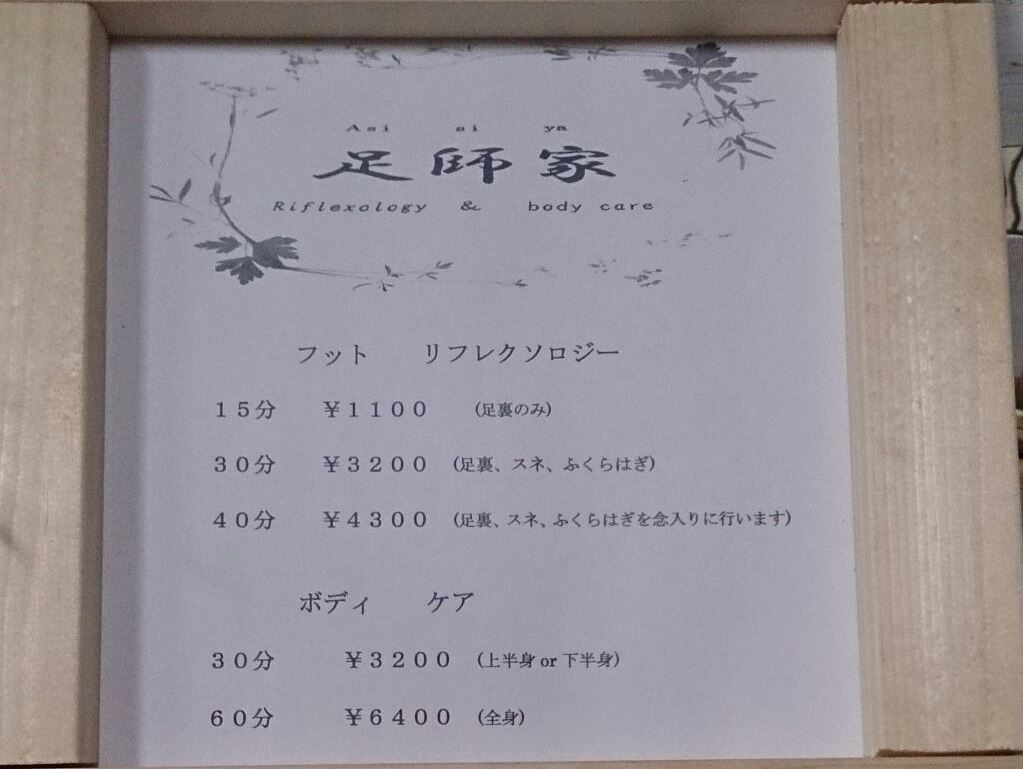 Asi si ya
足師家
Riflexology & body care
フット リフレクソロジー
15分 ¥1100 (足裏のみ)
30分 ¥3200 (足裏、スネ、ふくらはぎ)
40分 ¥4300 (足裏、スネ、ふくらはぎを念入りに行います)
ボディ ケア
30分 ¥3200 (上半身 or 下半身)
60分 ¥6400 (全身)